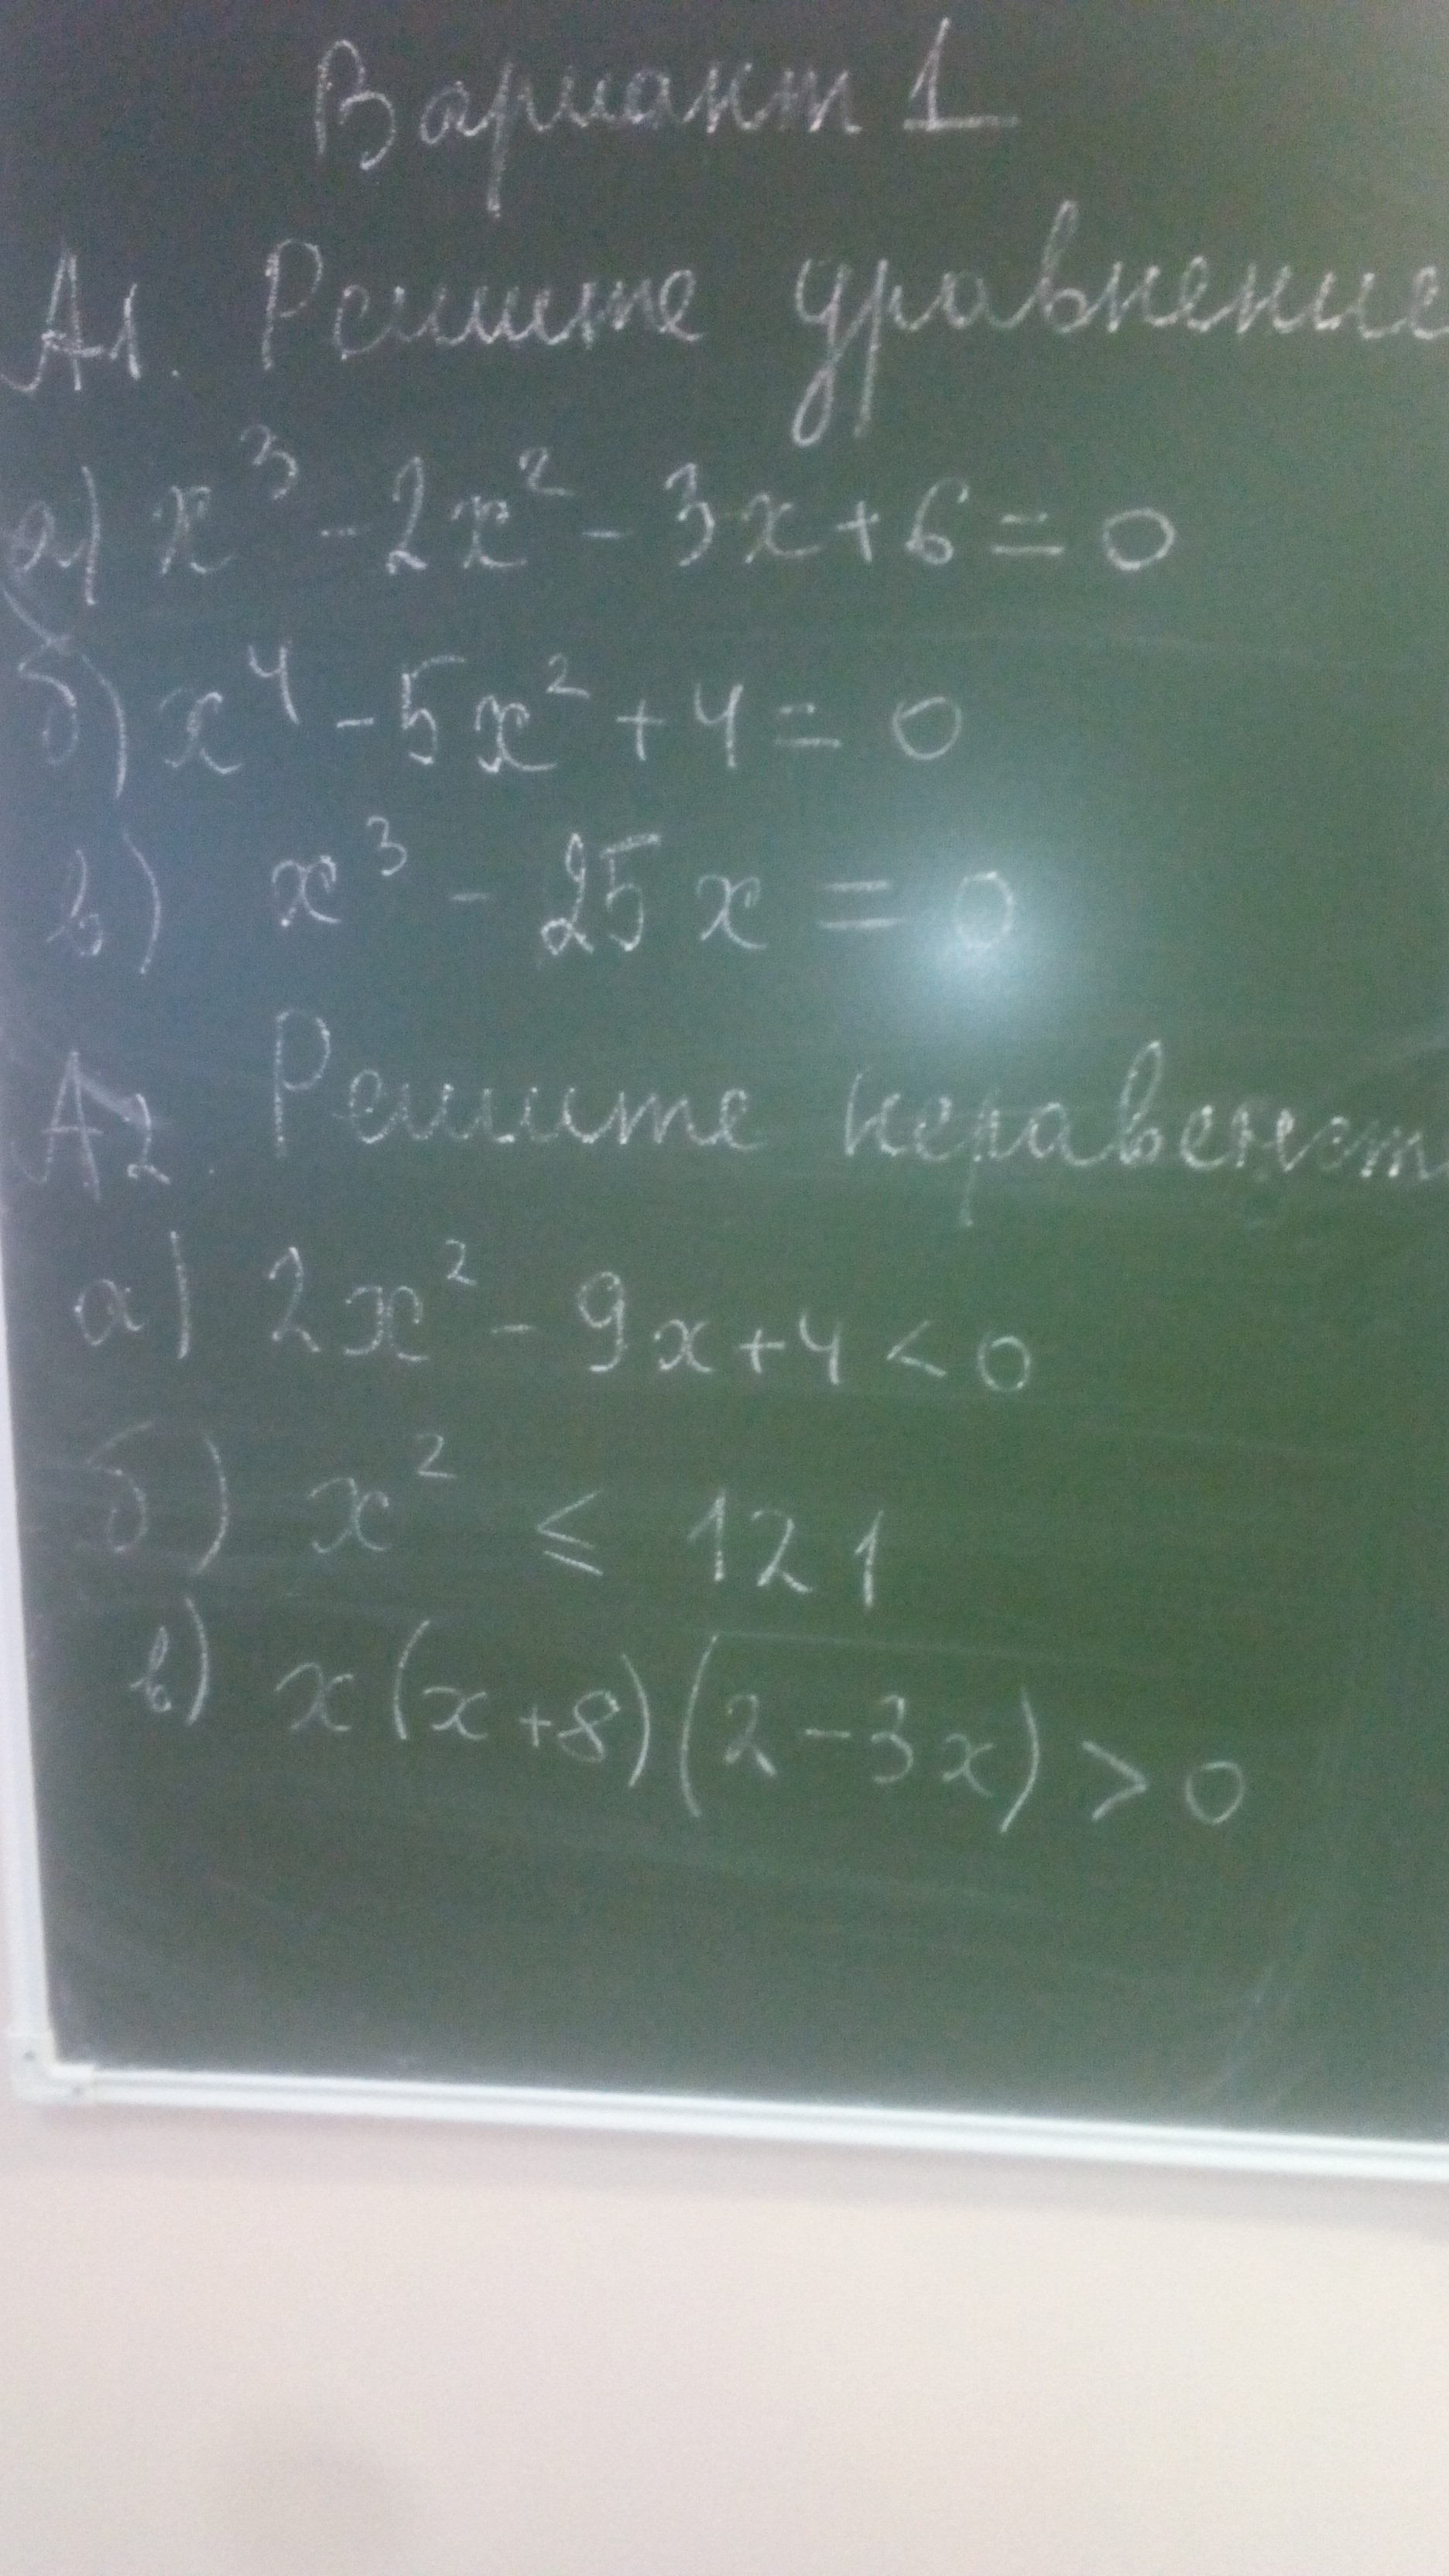 Вариант 1
А1. Решите уравнение
а) x³ - 2x² - 3x + 6 = 0
б) x⁴ - 5x² + 4 = 0
в) x³ - 25x = 0
А2. Решите неравенст
а) 2x² - 9x + 4 < 0
б) x² ≤ 121
в) x(x+8)(2-3x) > 0